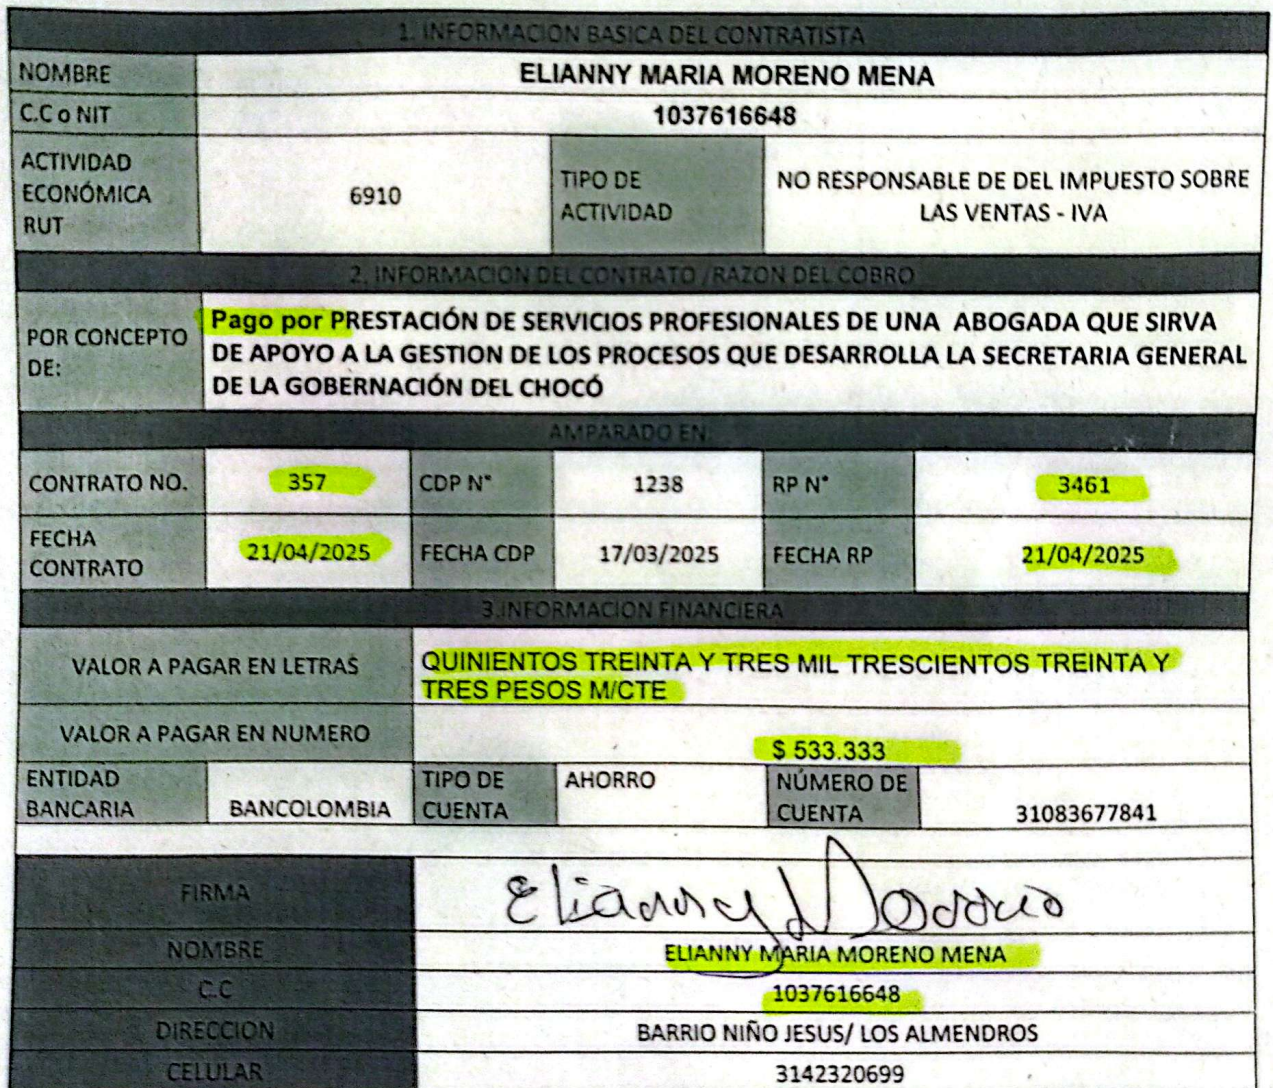 1. INFORMACION BASICA DEL CONTRATISTA
NOMBRE ELIANNY MARIA MORENO MENA
C.C o NIT 1037616648
ACTIVIDAD ECONÓMICA RUT 6910 TIPO DE ACTIVIDAD NO RESPONSABLE DE DEL IMPUESTO SOBRE LAS VENTAS - IVA
2. INFORMACION DEL CONTRATO /RAZON DEL COBRO
POR CONCEPTO DE:
Pago por PRESTACIÓN DE SERVICIOS PROFESIONALES DE UNA ABOGADA QUE SIRVA
DE APOYO A LA GESTION DE LOS PROCESOS QUE DESARROLLA LA SECRETARIA GENERAL
DE LA GOBERNACIÓN DEL CHOCÓ
AMPARADO EN:
CONTRATO NO. 357 CDP N° 1238 RP N° 3461
FECHA CONTRATO 21/04/2025 FECHA CDP 17/03/2025 FECHA RP 21/04/2025
3.INFORMACION FINANCIERA
VALOR A PAGAR EN LETRAS
QUINIENTOS TREINTA Y TRES MIL TRESCIENTOS TREINTA Y
TRES PESOS M/CTE
VALOR A PAGAR EN NUMERO $ 533.333
ENTIDAD BANCARIA BANCOLOMBIA TIPO DE CUENTA AHORRO NÚMERO DE CUENTA 31083677841
FIRMA Elianny Moreno
NOMBRE ELIANNY MARIA MORENO MENA
C.C 1037616648
DIRECCION BARRIO NIÑO JESUS/ LOS ALMENDROS
CELULAR 3142320699